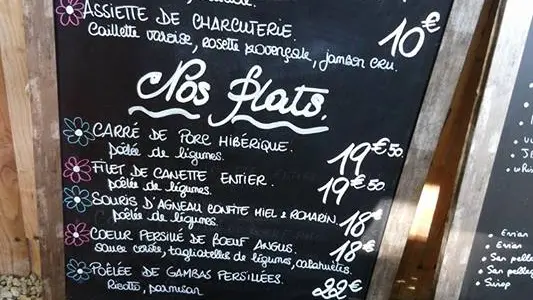 ASSIETTE DE CHARCUTERIE. 10€
Caillette varoise, rosette provençale, jambon cru.
Nos plats.
CARRÉ DE PORC HIBÉRIQUE. 19€50.
poêlée de légumes.
FILET DE CANETTE ENTIER. 19€50.
poêlée de légumes.
SOURIS D'AGNEAU CONFITE MIEL & ROMARIN. 18€
poêlée de légumes.
COEUR PERSILLÉ DE BOEUF ANGUS. 18€
sauce , tagliatelles de légumes, cacahuètes.
POÊLÉE DE GAMBAS PERSILLÉES. 22€
Risotto, parmesan
Evian
San pelle
San pelleg
Sirop